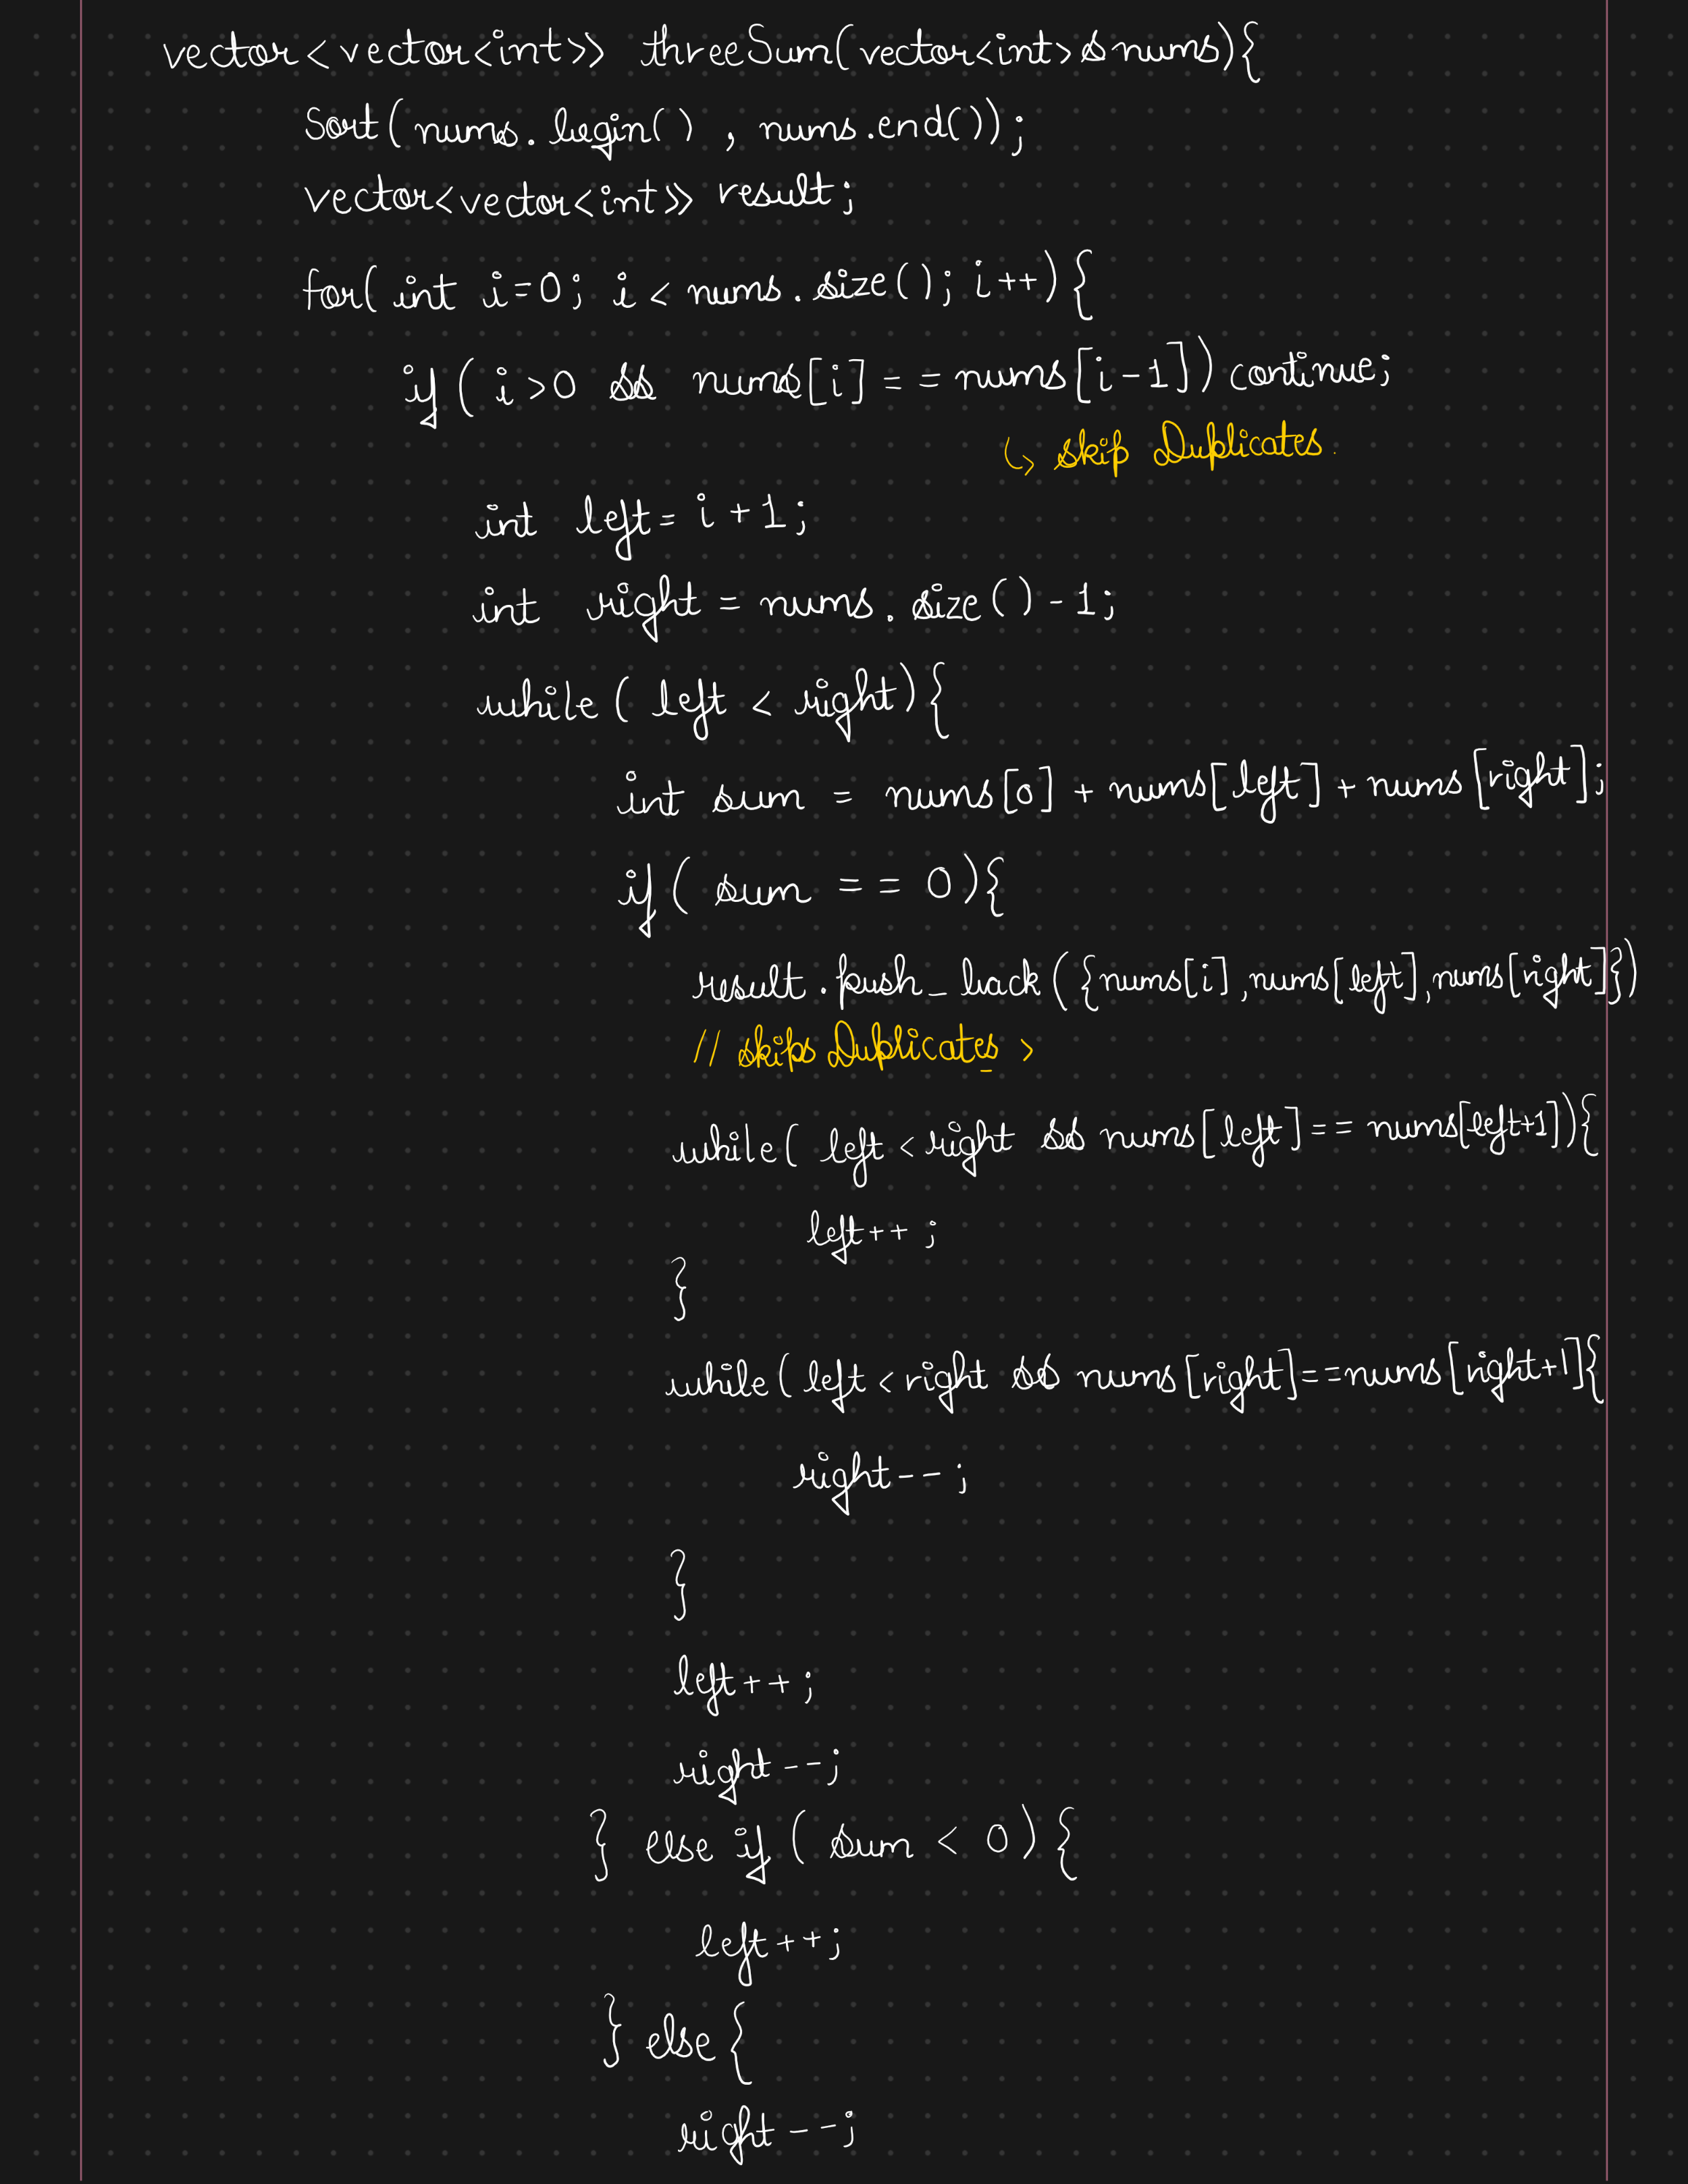 vector<vector<int>> threeSum(vector<int>&nums){
Sort(nums.begin() , nums.end());
vector<vector<int>> result;
for( int i=0; i < nums.size(); i++){
if( i>0 && nums[i] == nums[i-1]) continue;
↳ skip Duplicates.
int left = i + 1;
int right = nums.size() - 1;
while( left < right){
int sum = nums[0] + nums[left] + nums[right];
if( sum == 0){
result.push_back({nums[i],nums[left],nums[right]})
// skips Duplicates >
while( left < right && nums[left] == nums[left+1]){
left++ ;
}
while( left < right && nums[right]==nums[right+1]{
right-- ;
}
left++;
right--;
} else if( sum < 0){
left++;
} else {
right--;